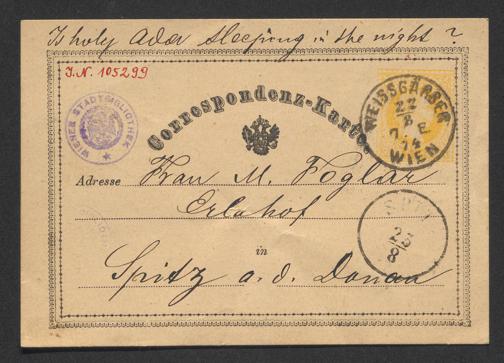 Is holy Ador sleeping in the night?
J.N. 105299
WIENER STADTBIBLIOTHEK
Correspondenz-Karte.
WEISSGÄRBER
22
8
7. E.
74
WIEN
Adresse Frau M. Foglar
Erlahof
in
Spitz a. d. Donau
SPITZ
23
8